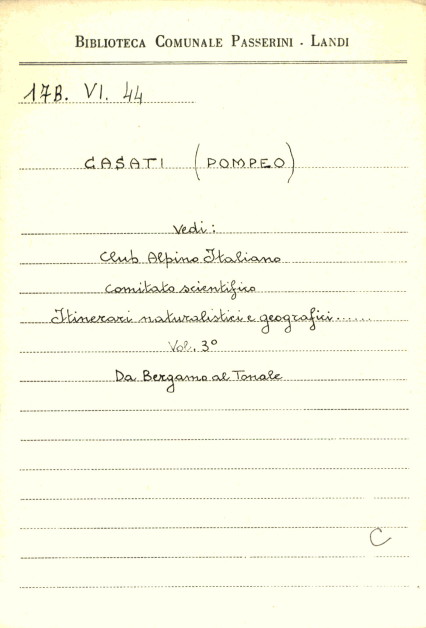 BIBLIOTECA COMUNALE PASSERINI - LANDI
17B. VI. 44
CASATI (POMPEO)
Vedi:
Club Alpino Italiano
Comitato scientifico
Itinerari naturalistici e geografici......
Vol. 3°
Da Bergamo al Tonale
C